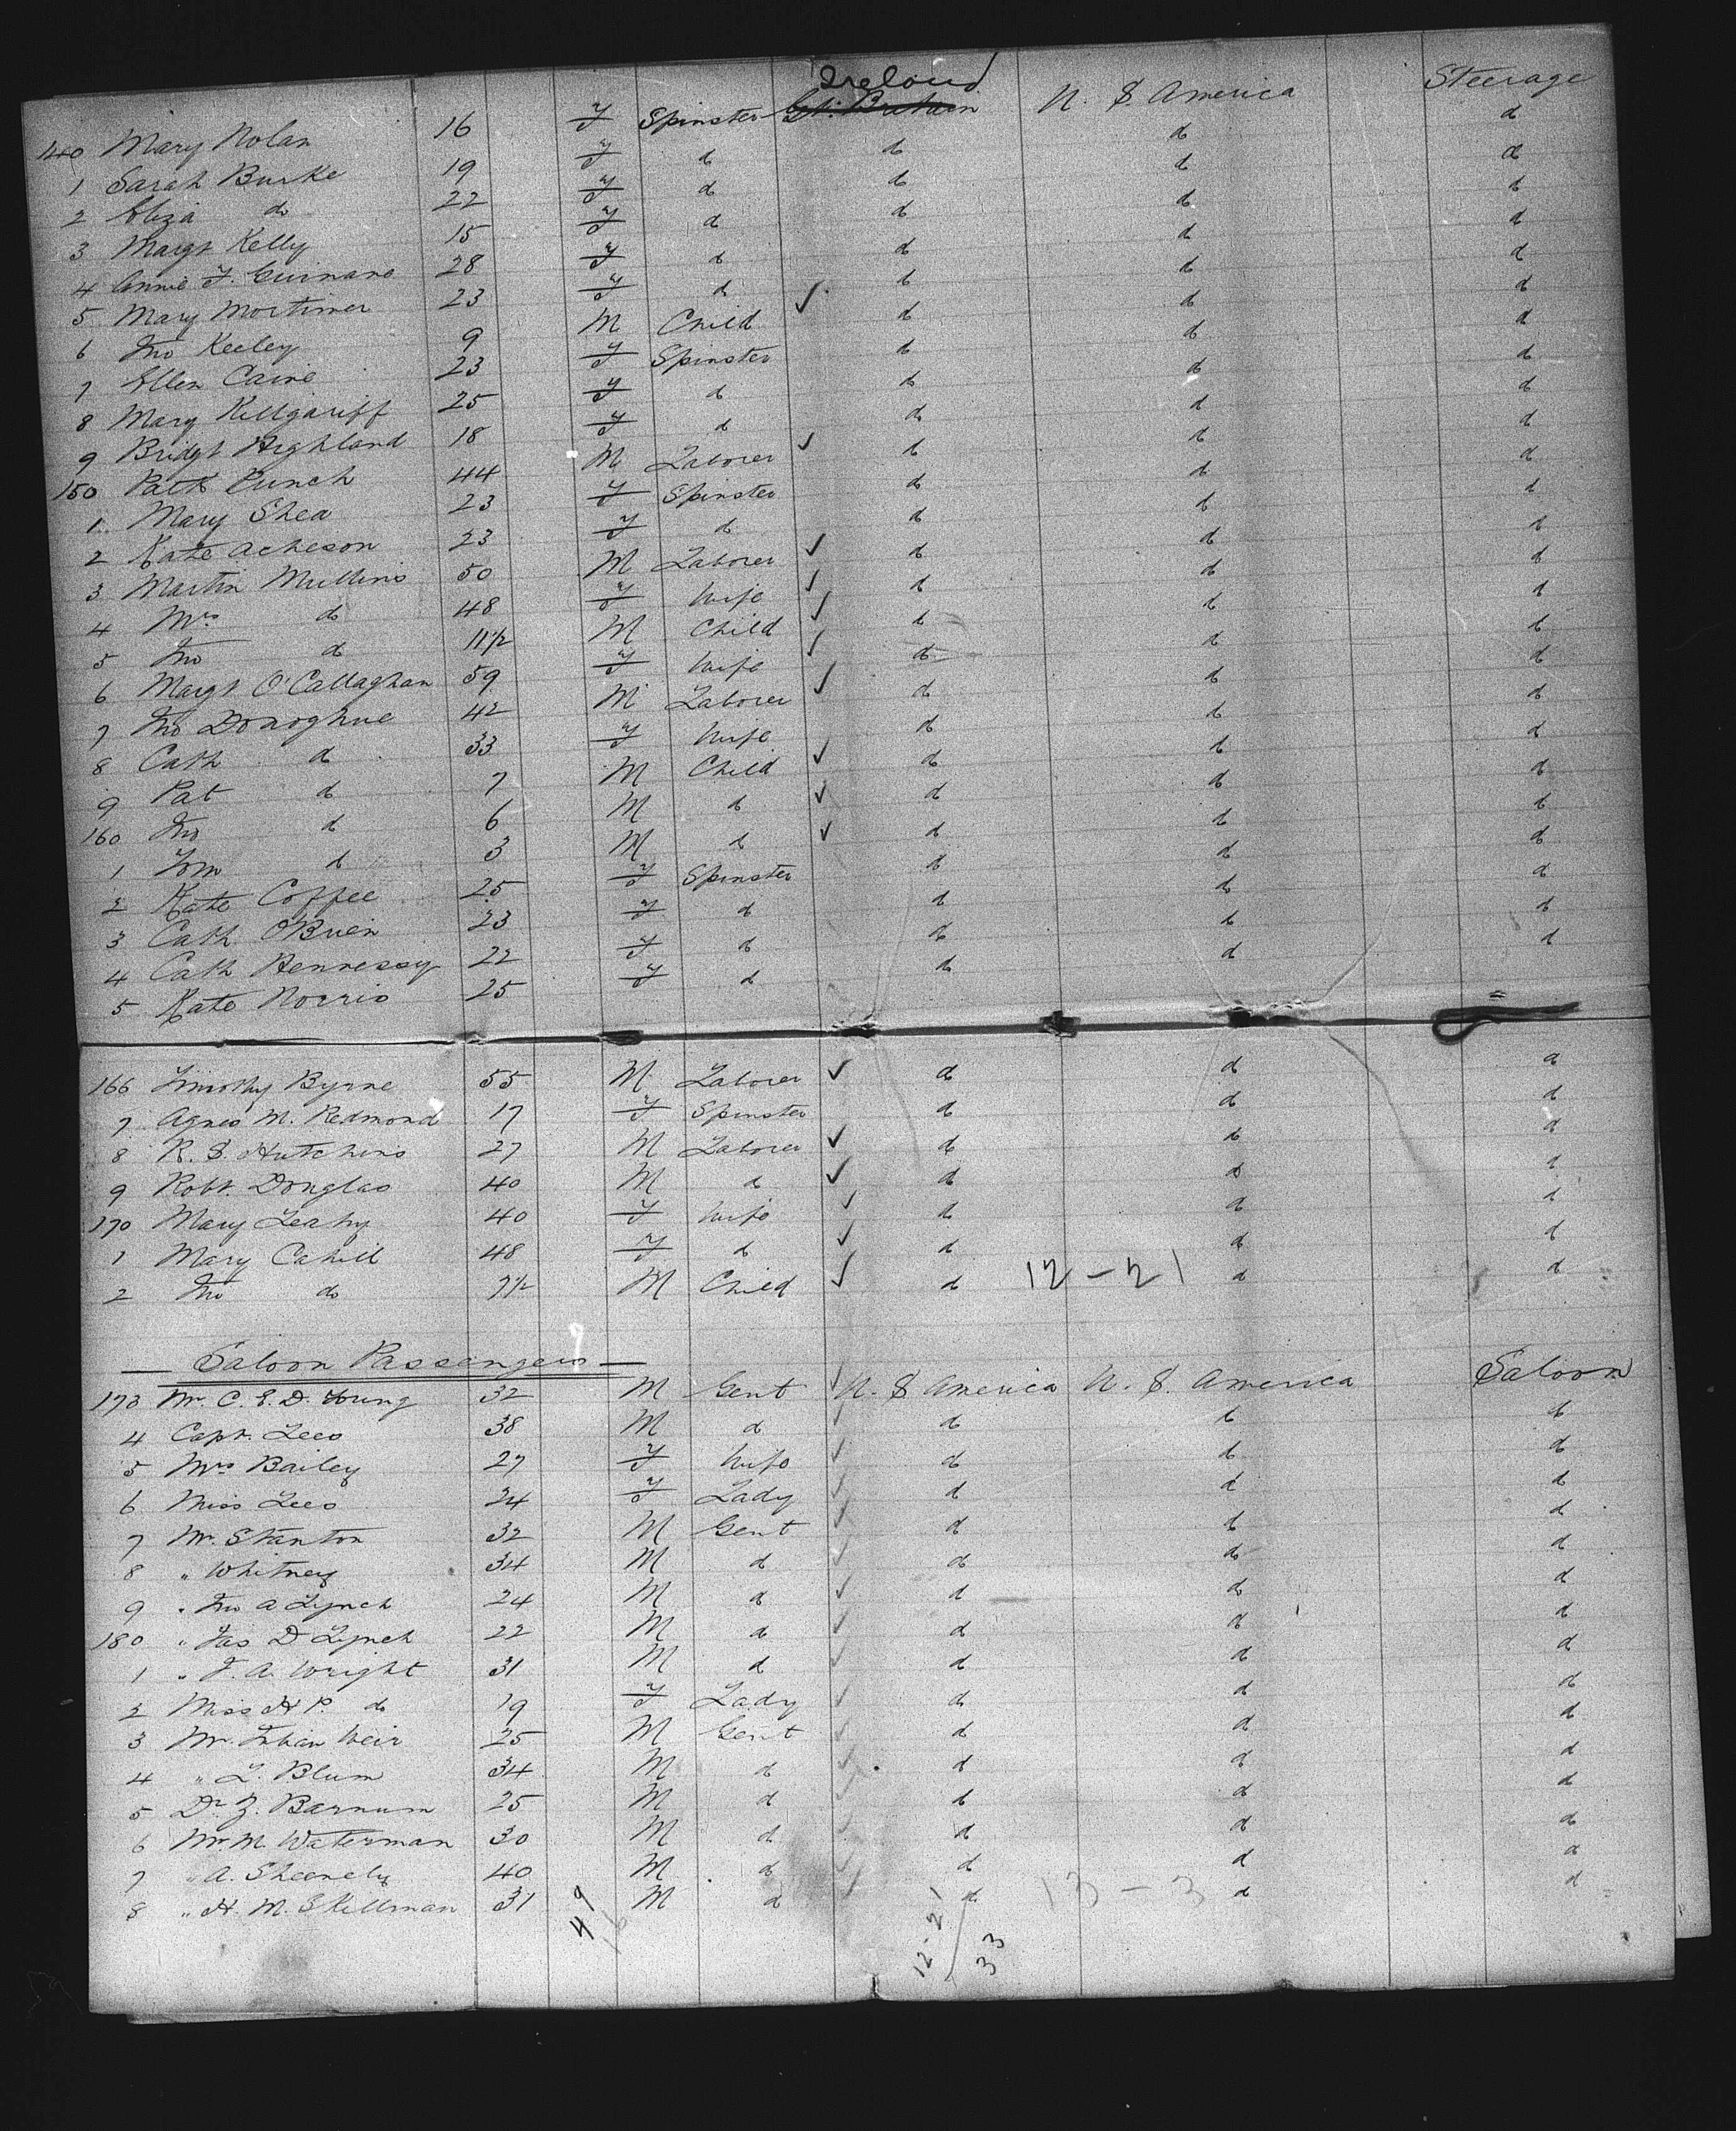 Ireland
140 Mary Nolan 16 F Spinster Gt. Britain U. S. America Steerage
1 Sarah Burke 19 F d d d d
2 Eliza do 22 F d d d d
3 Margt Kelly 15 F d d d d
4 Annie F. Guinane 28 F d d d d
5 Mary Mortimer 23 F d d d d
6 Jno Keeley 9 M Child ✓ d d d
7 Ellen Caine 23 F Spinster d d d
8 Mary Killgariff 25 F d d d d
9 Bridgt Highland 18 F d d d d
150 Patk Punch 44 M Laborer ✓ d d d
1 Mary Shea 23 F Spinster d d d
2 Kate Acheson 23 F d d d d
3 Martin Mullins 50 M Laborer ✓ d d d
4 Mrs do 48 F Wife ✓ d d d
5 Jno d 11½ M Child ✓ d d d
6 Margt O'Callaghan 59 F Wife ✓ d d d
7 Jno Donoghue 42 M Laborer ✓ d d d
8 Cath d 33 F Wife d d d
9 Pat d 7 M Child ✓ d d d
160 Jno d 6 M d ✓ d d d
1 Tom d 3 M d ✓ d d d
2 Kate Coffee 25 F Spinster d d d
3 Cath O'Brien 23 F d d d d
4 Cath Hennessy 22 F d d d d
5 Kate Norris 25 F d d d d
166 Timothy Byrne 55 M Laborer ✓ d d d
7 Agnes M. Redmond 17 F Spinster d d d
8 R. S. Hutchins 27 M Laborer ✓ d d d
9 Robt. Douglas 40 M d ✓ d d d
170 Mary Leahy 40 F Wife ✓ d d d
1 Mary Cahill 48 F d ✓ d d d
2 Jno do 7½ M Child ✓ d 12-21 d d
Saloon Passengers
173 Mr. C. E. D. Young 32 M Gent ✓ U. S America U. S. America Saloon
4 Capt. Lees 38 M d ✓ d d d
5 Mrs Bailey 27 F Wife ✓ d d d
6 Miss Lees 24 F Lady ✓ d d d
7 Mr. Stanton 32 M Gent ✓ d d d
8 " Whitney 34 M d ✓ d d d
9 " Jno A Lynch 24 M d ✓ d d d
180 " Jas D Lynch 22 M d ✓ d d d
1 " F. A. Wright 31 M d ✓ d d d
2 Miss H P. do 19 F Lady ✓ d d d
3 Mr. Weir 25 M Gent ✓ d d d
4 " L. Blum 34 M d ✓ d d d
5 Dr Z. Barnum 25 M d ✓ d d d
6 Mr. M. Waterman 30 M d ✓ d d d
7 " A. Sheenely 40 M d ✓ d d d
8 " H. M. Skillman 31 M d ✓ d 13-3 d d
49
12-21
33